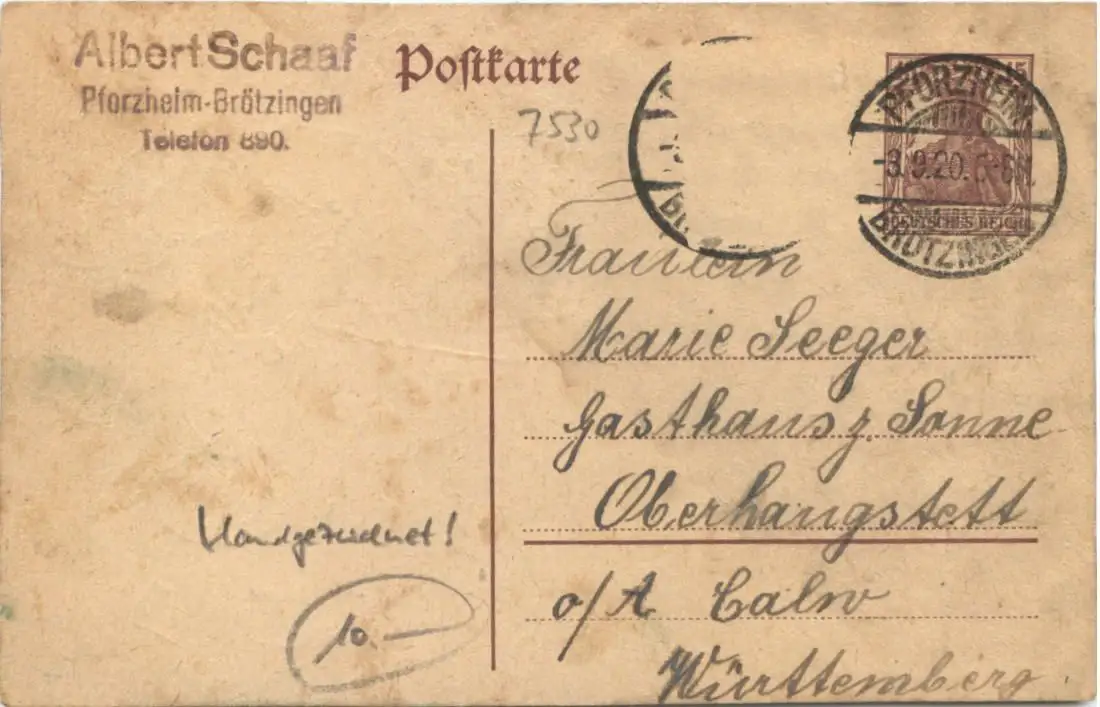 Albert Schaaf
Pforzheim-Brötzingen
Telefon 890.
Postkarte
7530
15
PFORZHEIM
9.20.
BRÖTZINGEN
DEUTSCHES REICH
Fräulein
Marie Seeger
Gasthaus z. Sonne
Oberhaugstett
o/A Calw
Württemberg
Handgezeichnet!
10.—